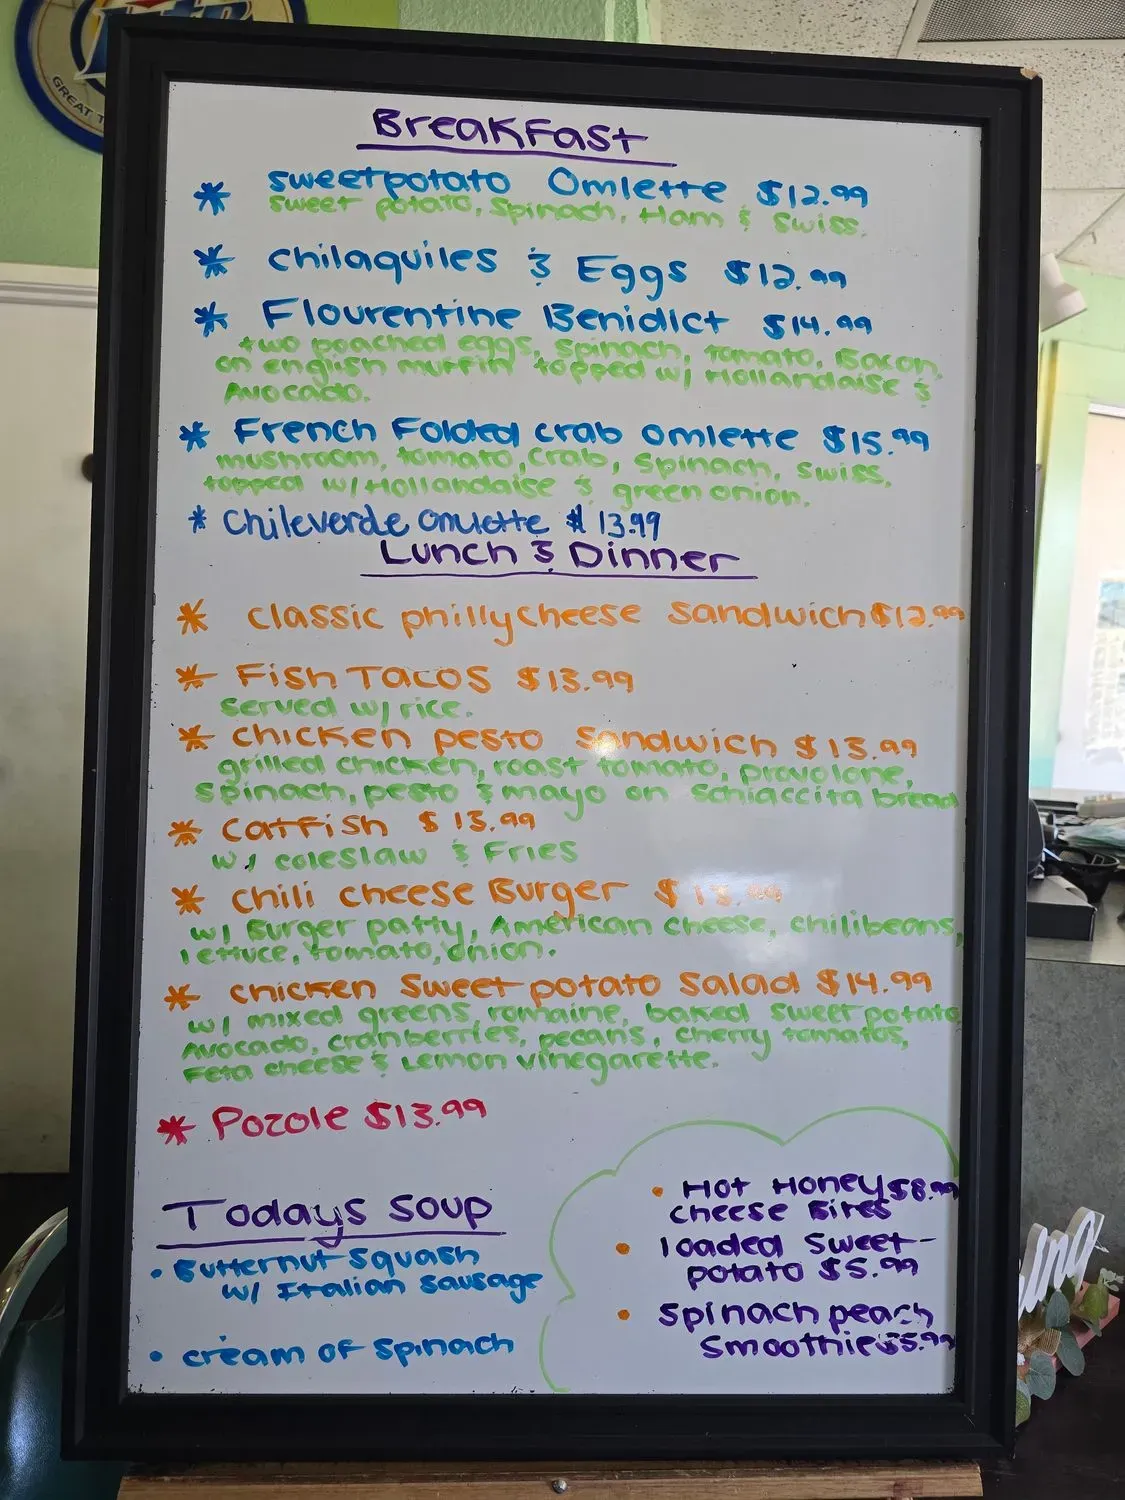 GREAT
Breakfast
* sweetpotato Omlette $12.99
sweet potato, spinach, Ham & Swiss.
* chilaquiles & Eggs $12.99
* Flourentine Benidict $14.99
two poached eggs, spinach, tomato, Bacon,
on english muffin topped w/ Hollandaise &
Avocado.
* French Folded crab omlette $15.99
mushroom, tomato, crab, spinach, swiss,
topped w/ Hollandaise & green onion.
* Chileverde omlette $13.99
Lunch & Dinner
* classic phillycheese sandwich $12.99
* Fish Tacos $13.99
served w/ rice.
* chicken pesto sandwich $13.99
grilled chicken, roast tomato, provolone,
spinach, pesto & mayo on schiaccita bread
* catfish $13.99
w/ coleslaw & Fries
* chili cheese Burger $13.99
w/ Burger patty, American cheese, chilibeans,
lettuce, tomato, onion.
* chicken sweet potato salad $14.99
w/ mixed greens, romaine, baked sweet potato
Avocado, cranberries, pecans, cherry tomatos,
Feta cheese & Lemon vinegarette.
* Pozole $13.99
Todays soup
• Butternut squash
w/ Italian sausage
• cream of spinach
• Hot Honey $8.99
cheese Bites
• loaded sweet-
potato $5.99
• spinach peach
smoothie $5.99